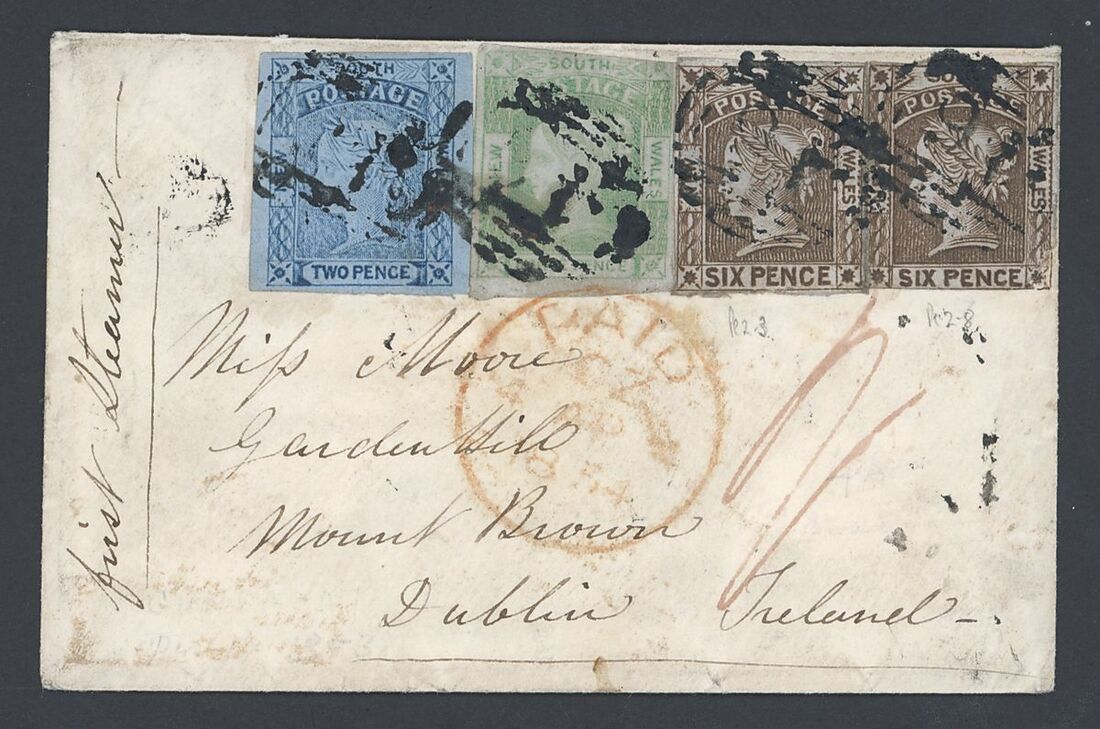 SOUTH
POSTAGE
NEW
TWO PENCE
SOUTH
POSTAGE
NEW
WALES
PENCE
POSTAGE
WALES
SIX PENCE
POSTAGE
WALES
SIX PENCE
first Steamer
PAID
Miss Moore
Garden Hill
Mount Brown
Dublin Ireland